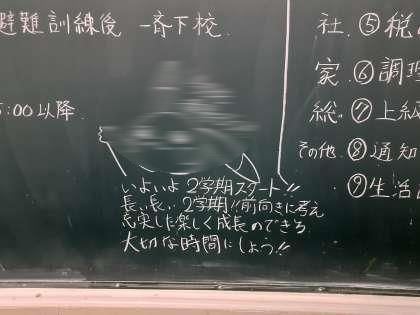 避難訓練後 一斉下校.
:00以降
いよいよ 2学期スタート!!
長い長い 2学期!!前向きに考え
充実した楽しく成長のできる
大切な時間にしよう!!
社.⑤税
家.⑥調理
総.⑦上級
その他.⑧通知
⑨生活